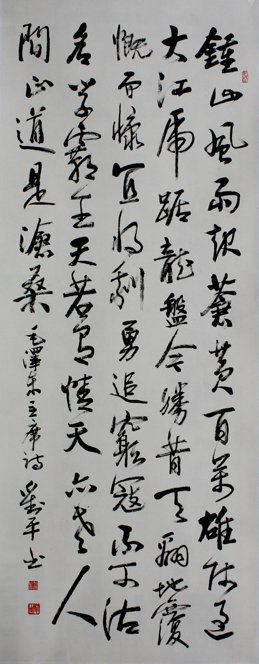 鍾山風雨起蒼黄百萬雄師過
大江虎踞龍盤今勝昔天翻地覆
慨而慷宜將剩勇追窮寇不可沽
名學霸王天若有情天亦老人
間正道是滄桑 毛澤東主席詩 劉平书